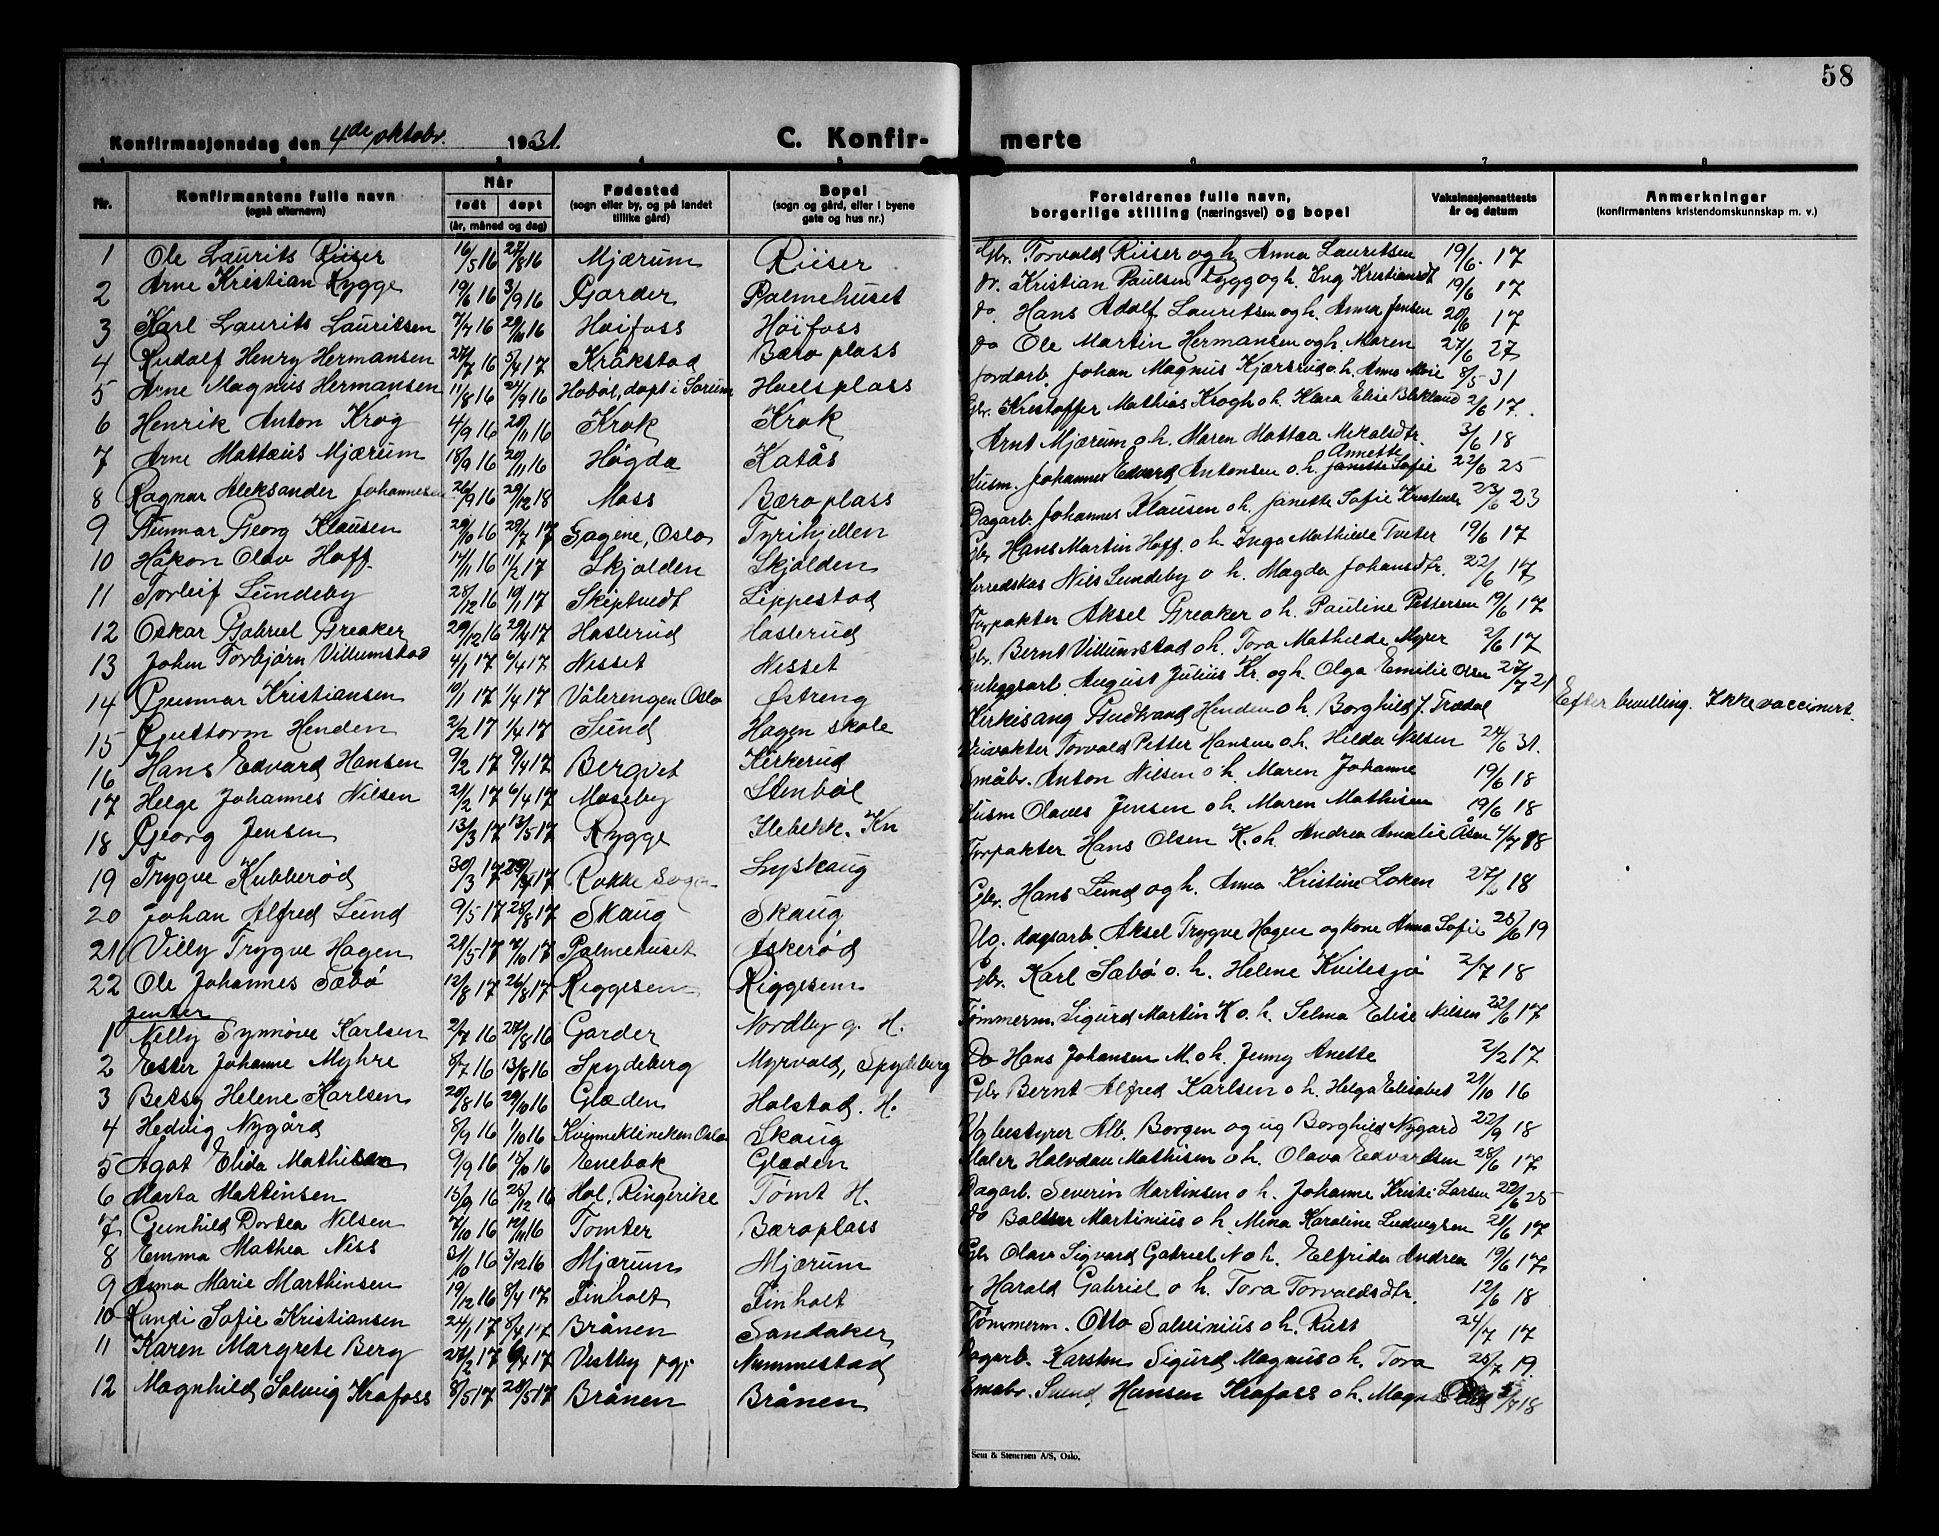 58
Konfirmasjonsdag den 4de oktobr. 1931. C. Konfir- merte
6 7 8
Nr. Konfirmantens fulle navn (også efternavn) Når født døpt (år, måned og dag) Fødested (sogn eller by, og på landet tillike gård) Bopel (sogn og gård, eller i byene gate og hus nr.) Foreldrenes fulle navn, borgerlige stilling (næringsvei) og bopel Vaksinasjonsattests år og datum Anmerkninger (konfirmantens kristendomskunnskap m. v.)
1 Ole Laurits Riiser 16/5 16 27/8 16 Mjærum Riiser Gbr. Torvald Riiser og h. Anna Lauritsen 19/6. 17
2 Arne Kristian Rygge 19/6 16 3/9 16 Garder Palmehuset do. Kristian Paulsen Rygg og h. Ing Kristiansdt 19/6 17
3 Karl Laurits Lauritsen 7/7 16 29/10 16 Høifoss Høifoss do. Hans Adolf Lauritsen og h. Anna Jensen 20/6 17
4 Rudolf Henry Hermansen 27/7 16 5/4 17 Kråkstad Bæroplass do Ole Martin Hermansen og h. Maren 27/6 27
5 Arne Magnus Hermansen 11/8 16 24/9 16 Hobøl, døpt i Sørum Huelsplass Jordarb. Johan Magnus Kjærsrud o. h. Anna Marie 8/5 31
6 Henrik Anton Krog 4/9 16 20/11 16 Krok Krok Gbr. Kristoffer Mathias Krogh o h. Klara Elise Blekland 2/6 17.
7 Arne Mattæus Mjærum 18/9 16 20/11 16 Høgda Katås Arnt Mjærum o h. Maren Mattea Mikalsdtr. 3/6 18
8 Ragnar Aleksander Johannesen 26/9 16 29/12 18 Moss Bæroplass Husm. Johannes Edvard Antonsen o. h. Janette Annette Sofie 22/6 25
9 Gunnar Georg Klausen 29/10 16 29/7 17 Sagene, Oslo Tyrihjellen Dagarb. Johannes Klausen o h. Janette Sofie Kristensen 23/6 23
10 Håkon Olav Hoff. 14/11 16 11/2 17 Skjolden Skjolden Gbr. Hans Martin Hoff. o h Inga Mathilde Tveter 19/6 17
11 Torleif Sundeby 28/12 16 19/11 17 Skiptvedt Lippestad Herredskas Nils Sundeby o h. Magda Johansdtr. 22/6 17
12 Oskar Gabriel Greaker 29/12 16 29/4 17 Haslerud Haslerud Forpakter Aksel Greaker o h. Pauline Pettersen 19/6 17
13 John Torbjørn Villumstad 4/1 17 6/4 17 Nisset Nisset Gbr. Bernt Villumstad o h. Tora Mathilde Myrer 2/6 17
14 Gunnar Kristiansen 10/1 17 1/4 17 Vålerengen Oslo Østreng Anleggsarb. August Julius Kr. og h. Olga Emilie Olsen 27/7 21
15 Guttorm Henden 2/2 17 1/4 17 Sund Hagen skole Kirkesang Gudbrand Henden o h. Borghild J. Trædal Efter bevilling. Ikke vaccinert.
16 Hans Edvard Hansen 9/2 17 9/4 17 Bergvet Kirkerud Veivokter Torvald Petter Hansen o h. Hilda Nilsen 24/6 31.
17 Helge Johannes Nilsen 21/2 17 6/4 17 Moseby Stenbøl Småbr. Anton Nilsen o h. Maren Johanne 19/6 18
18 Georg Jensen 13/3 17 13/5 17 Rygge Ilebekk. Kn Husm Olaves Jensen o h Maren Mathisen 19/6 18
19 Trygve Kubberød 30/3 17 29/4 17 Rokke sogn Lyskaug Forpakter Hans Olsen K. o h. Andrea Amalie Åsen 4/7 18
20 Johan Alfred Lund 9/5 17 28/8 17 Skaug Skaug Gbr. Hans Lund og h. Anna Kristine Loken 27/6 18
21 Villy Trygve Hagen 21/5 17 7/10 17 Palmehuset Askerød Ug. dagsarb. Aksel Trygve Hagen og kone Anna Sofie 28/6 19
22 Ole Johannes Sæbø 12/8 17 26/8 17 Riggesem Riggesem Gbr. Karl Sæbø o. h. Helene Kvilesjø 2/7 18
jenter
1 Nelly Synnøve Karlsen 2/7 16 27/8 16 Garder Nordby g. H. Tømmerm. Sigurd Martin K o. h. Selma Elise Nilsen 22/6 17
2 Ester Johanne Myhre 8/7 16 13/8 16 Spydeberg Myrvold, Spydeberg Do Hans Johansen M. o h. Jenny Anette 2/2 17
3 Betsy Helene Karlsen 20/8 16 29/10 16 Glæden Holstad. H. Gbr Bernt Alfred Karlsen o h. Helga Elisabet 21/10 16
4 Hedvig Nygård 8/9 16 1/10 16 Kvinneklineken Oslo Skaug Vg bestyrer Alb. Borgen og ug Borghild Nygård 22/9 18
5 Agot Elida Mathisen 9/9 16 15/10 16 Enebak Glæden Maler Halvdan Mathisen o h. Olava Edvardsen 28/6 17
6 Marta Martinsen 15/9 16 25/12 16 Hol, Ringerike Tømt H. Dagarb. Severin Martinsen o h. Johanne Kristi Larsen 22/6 25
7 Gunhild Dortea Nilsen 7/10 16 12/11 16 Tomter Bæroplass do Baltser Martinius o h. Mina Karoline Ludvigsen 21/6 17
8 Emma Mathea Niss 31/10 16 3/12 16 Mjærum Mjærum Gbr Olav Sigvard Gabriel N o h. Elfrida Andrea 19/6 17
9 Anna Marie Marthinsen 19/12 16 8/4 17 Finholt Finholt Harald Gabriel o h. Tora Torvaldsdtr. 12/6 18
10 Randi Sofie Kristiansen 24/1 17 8/4 17 Brånen Sandaker Tømmerm. Otto Salvinius o h. Russ 24/7 17
11 Karen Margrete Berg 27/2 17 6/4 17 Vestby pgj Nummestad Dagarb. Karsten Sigurd Magnus o h. Tora 25/7 19.
12 Magnhild Solveig Krafoss 8/5 17 28/5 17 Brånen Brånen Småbr. Svend Hansen Krafoss o h. Magna 5/7 18
Sem & Stenersen A/S, Oslo.